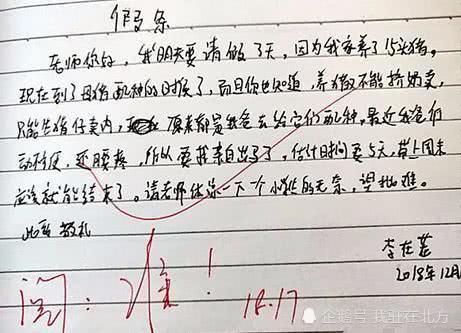 假条
老师你好,我明天要请假3天,因为我家养了15头猪。
现在到了母猪配种的时候了,而且你也知道,养猪又不能挤奶卖,
只能生猪仔卖肉,原来都是我爸去给它们配种,最近我爸行
动不便,还腰疼,所以要我亲自出马了,估计时间要5天,带上周末
应该就能结束了。请老师体谅一下一个小牲的无奈,望批准。
此致 敬礼
李在
2018年12月
阅:准!
18.17
企鹅号 我驻在北方